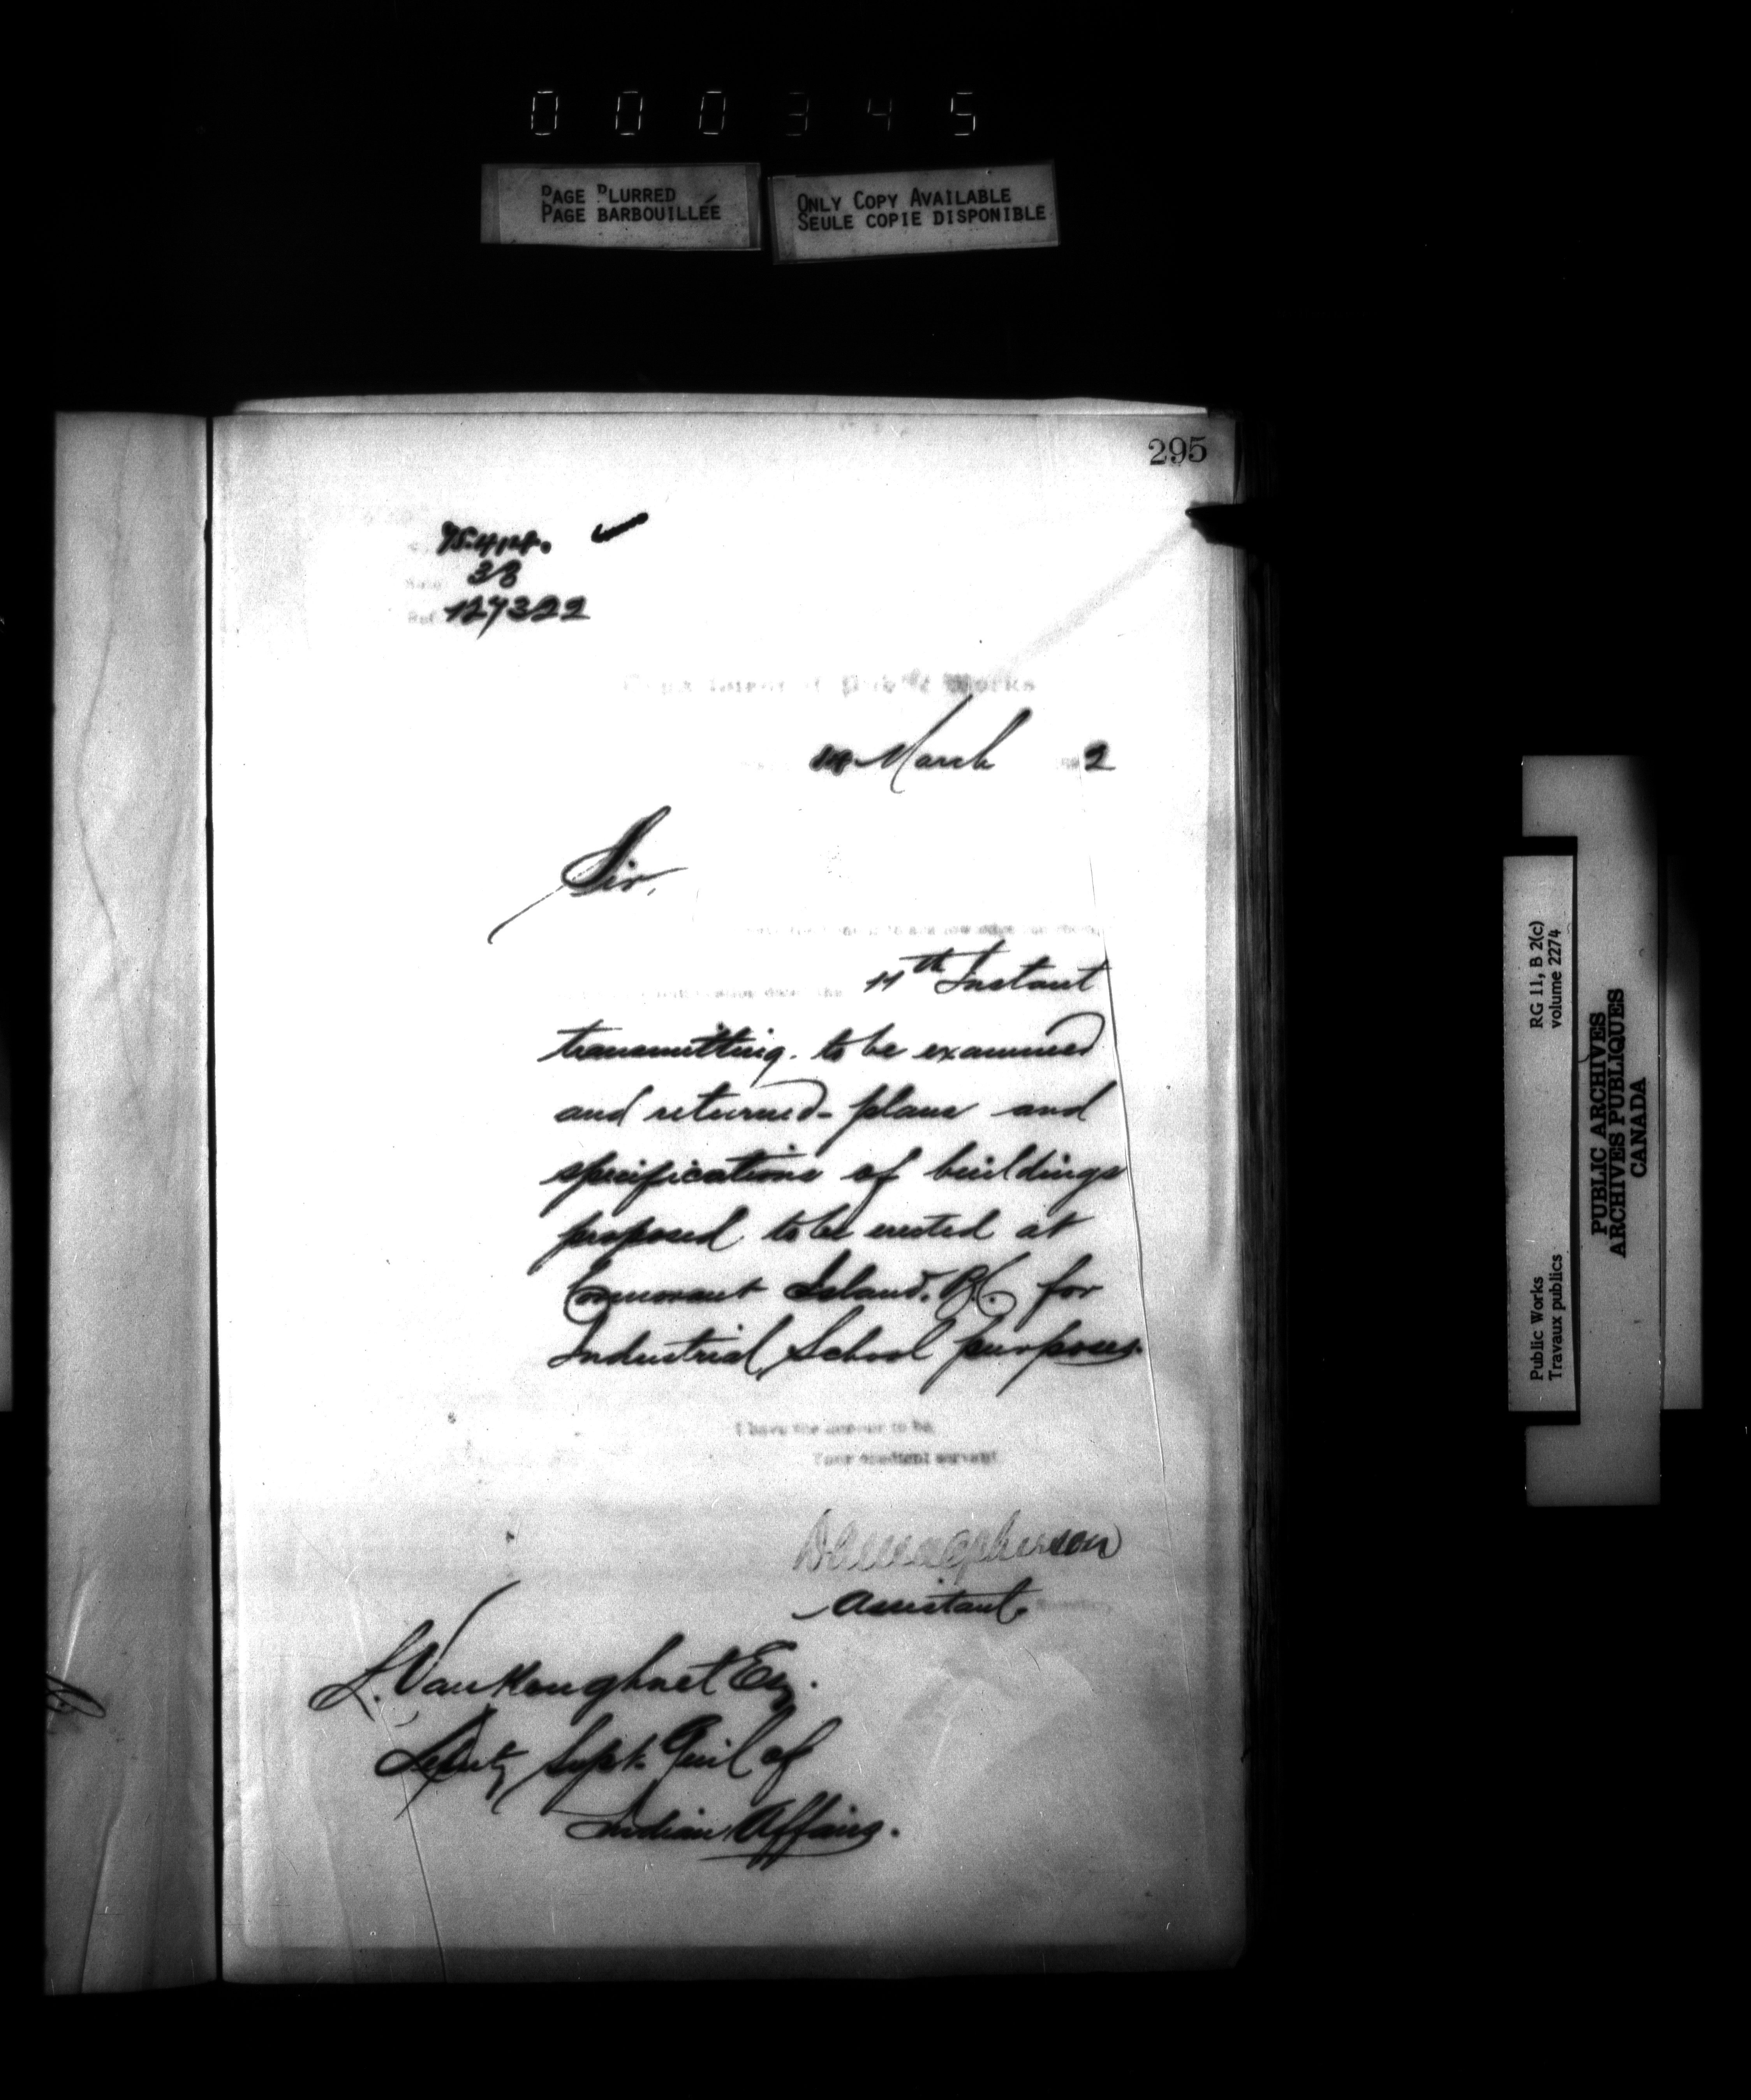 000345
PAGE BLURRED
PAGE BARBOUILLÉE
ONLY COPY AVAILABLE
SEULE COPIE DISPONIBLE
295
38
127322
Department of Public Works
March 2
Sir,
11th Instant
transmitting. to be examined
and returned- plans and
specifications of buildings
proposed to be erected at
Cormorant Island. B.C. for
Industrial School purposes.
I have the honour to be,
Your obedient servant
Assistant
L. VanKoughnet Esq.
Deputy Supt. Genl of
Indian Affairs.
RG 11, B 2(c)
volume 2274
Public Works
Travaux publics
PUBLIC ARCHIVES
ARCHIVES PUBLIQUES
CANADA